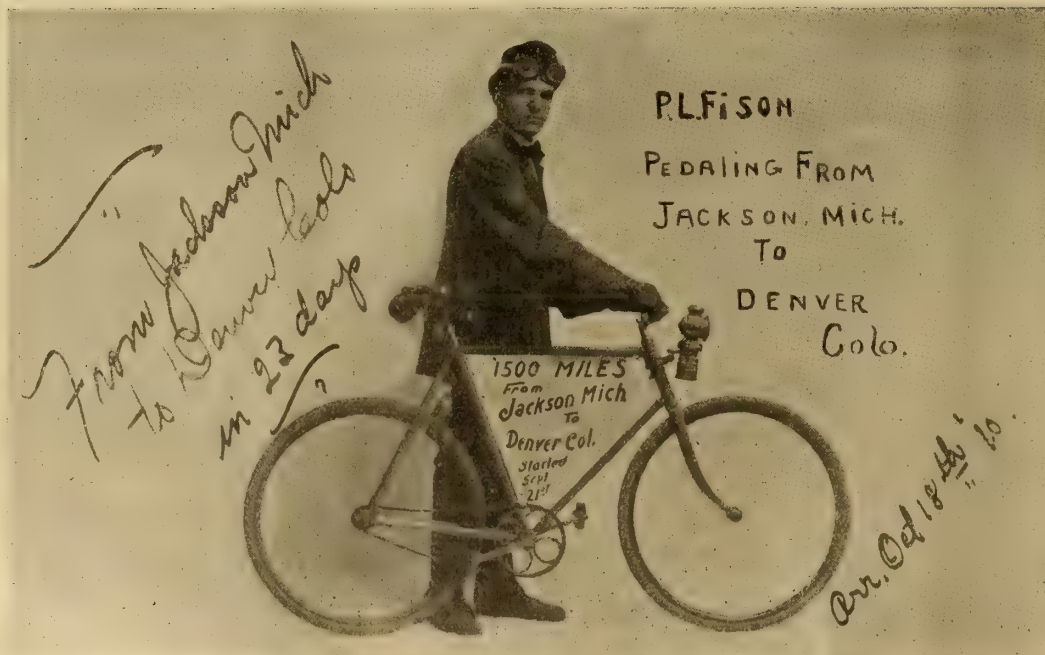 From Jackson Mich
to Denver Colo
in 23 days
P.L.FiSON
PEDALiNG FROM
JACKSON, MiCH.
To
DENVER
Colo.
1500 MILES
From
Jackson Mich
To
Denver Col.
Started
Sept
21st
Arr. Oct 18th